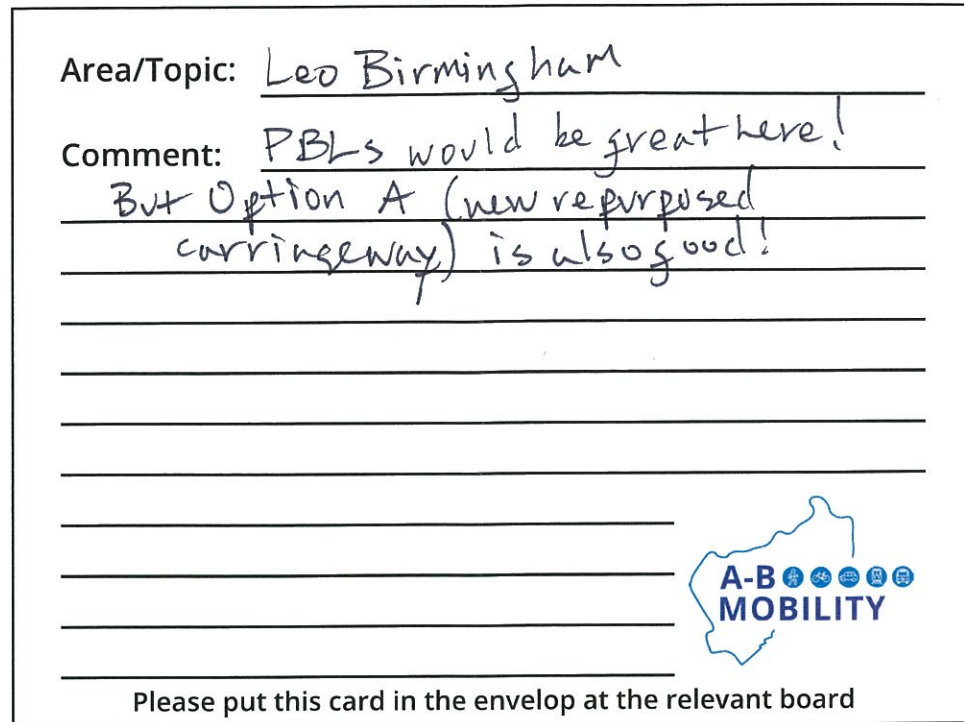 Area/Topic: Leo Birmingham
Comment: PBLs would be great here!
But Option A (new repurposed
carringeway) is also good!
A-B
MOBILITY
Please put this card in the envelop at the relevant board